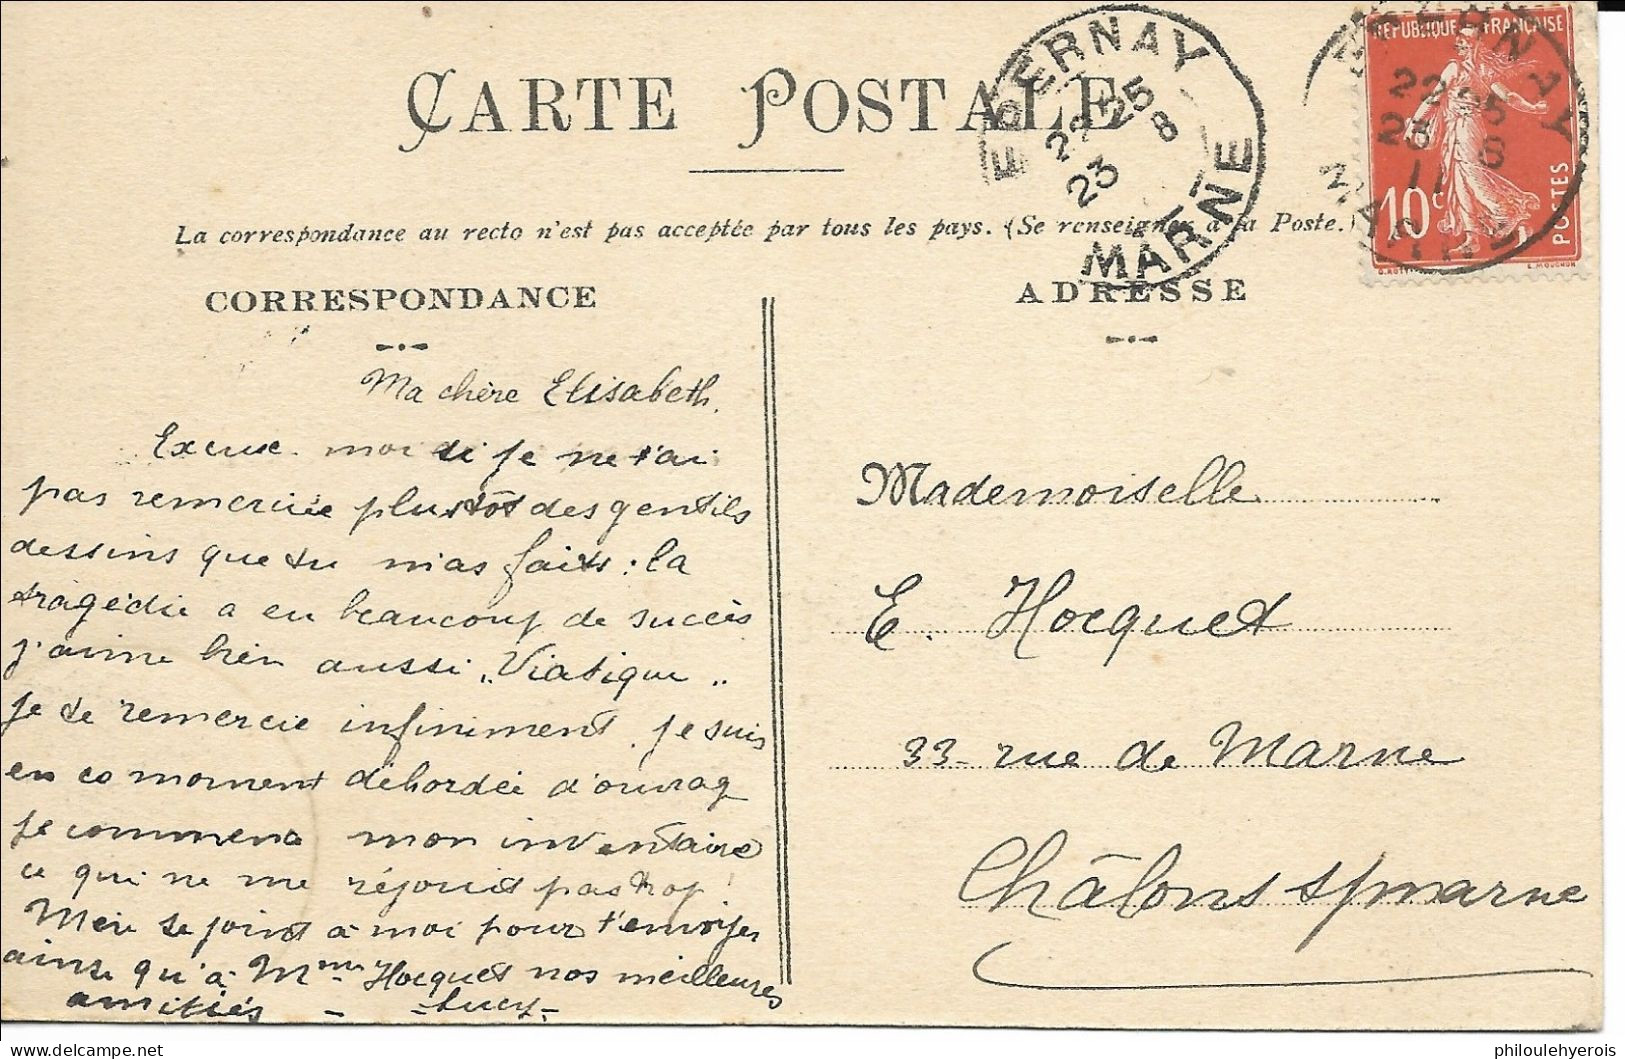 CARTE POSTALE
EPERNAY
22 25
23 8
MARNE
REPUBLIQUE FRANÇAISE
10c
POSTES
E. MOUCHON
La correspondance au recto n'est pas acceptée par tous les pays. (Se renseigner à la Poste.)
CORRESPONDANCE
ADRESSE
Ma chère Elisabeth.
Excuse-moi si je ne t'ai
pas remerciée plus tôt des gentils
dessins que tu m'as faits : la
tragédie a eu beaucoup de succès
j'aime bien aussi "Viatique"
je te remercie infiniment. je suis
en ce moment débordée d'ouvrag
je commence mon inventaire
ce qui ne me réjouit pas trop !
Mère se joint à moi pour t'envoyer
ainsi qu'à Mme Hocquet nos meilleures
amitiés - -Lucy-
Mademoiselle
E. Hocquet
33 - rue de Marne
Châlons s/marne
delcampe.net
philoulehyerois